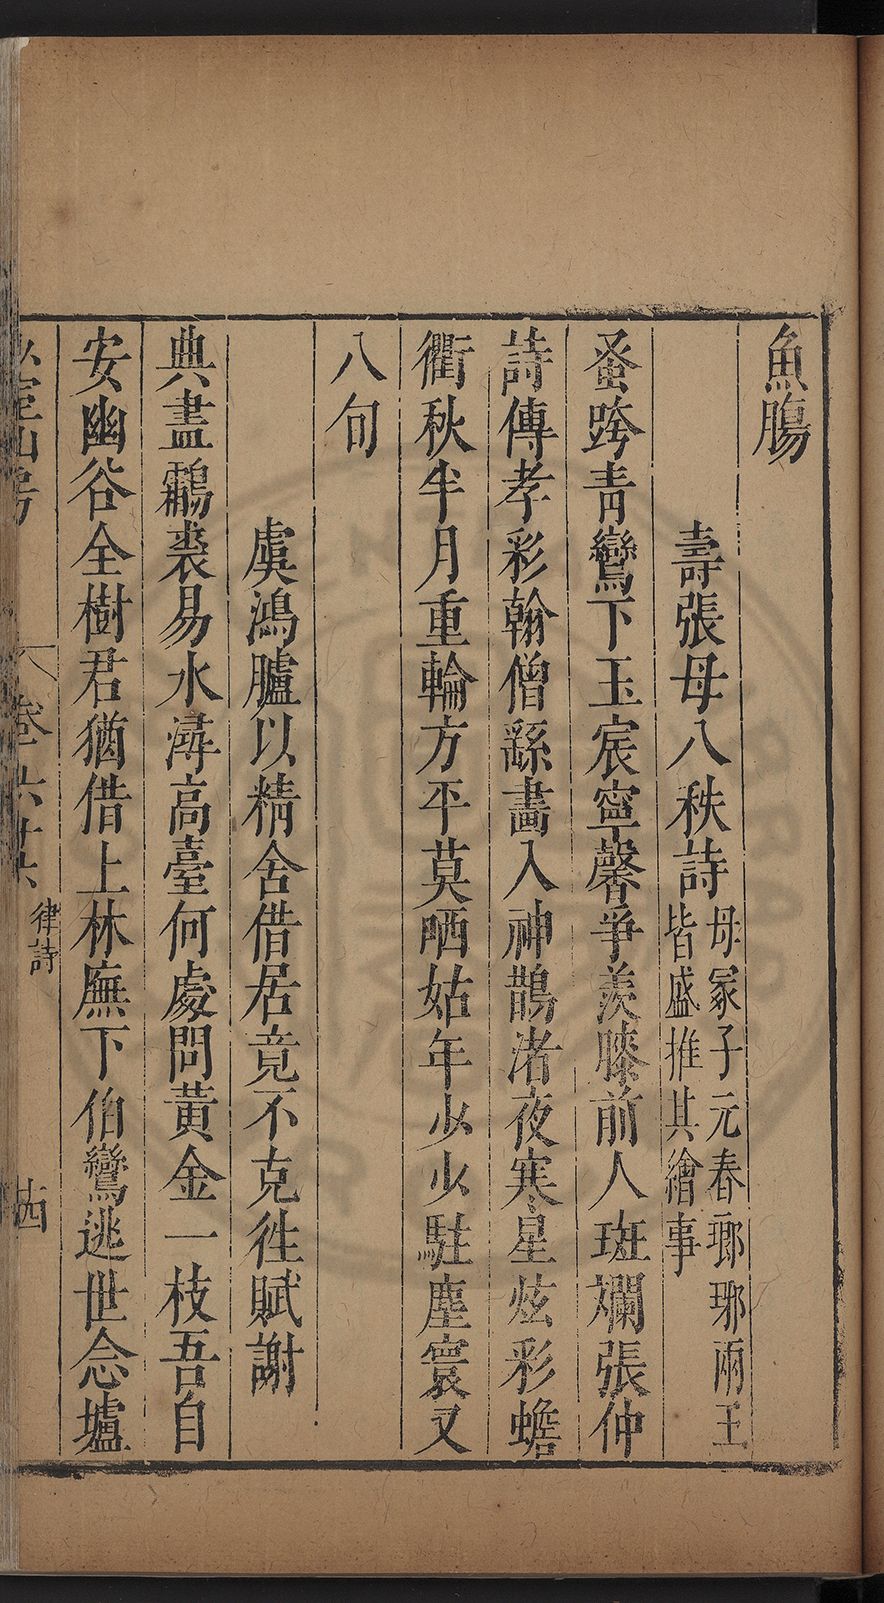 魚膓
壽張母八秩詩母冢子元春瑯琊兩王皆盛推其繪事
蚤跨青鸞下玉宸寧馨爭羨膝前人斑斕張仲
詩傳孝彩翰僧繇畫入神鵲渚夜寒星炫彩蟾
衢秋半月重輪方平莫哂姑年少少駐塵寰又
八旬
虞鴻臚以精舍借居竟不克徃賦謝
典盡鷫裘易水潯高臺何處問黃金一枝吾自
安幽谷全樹君猶借上林廡下伯鸞逃世念壚
山房
卷六十
律詩
十四